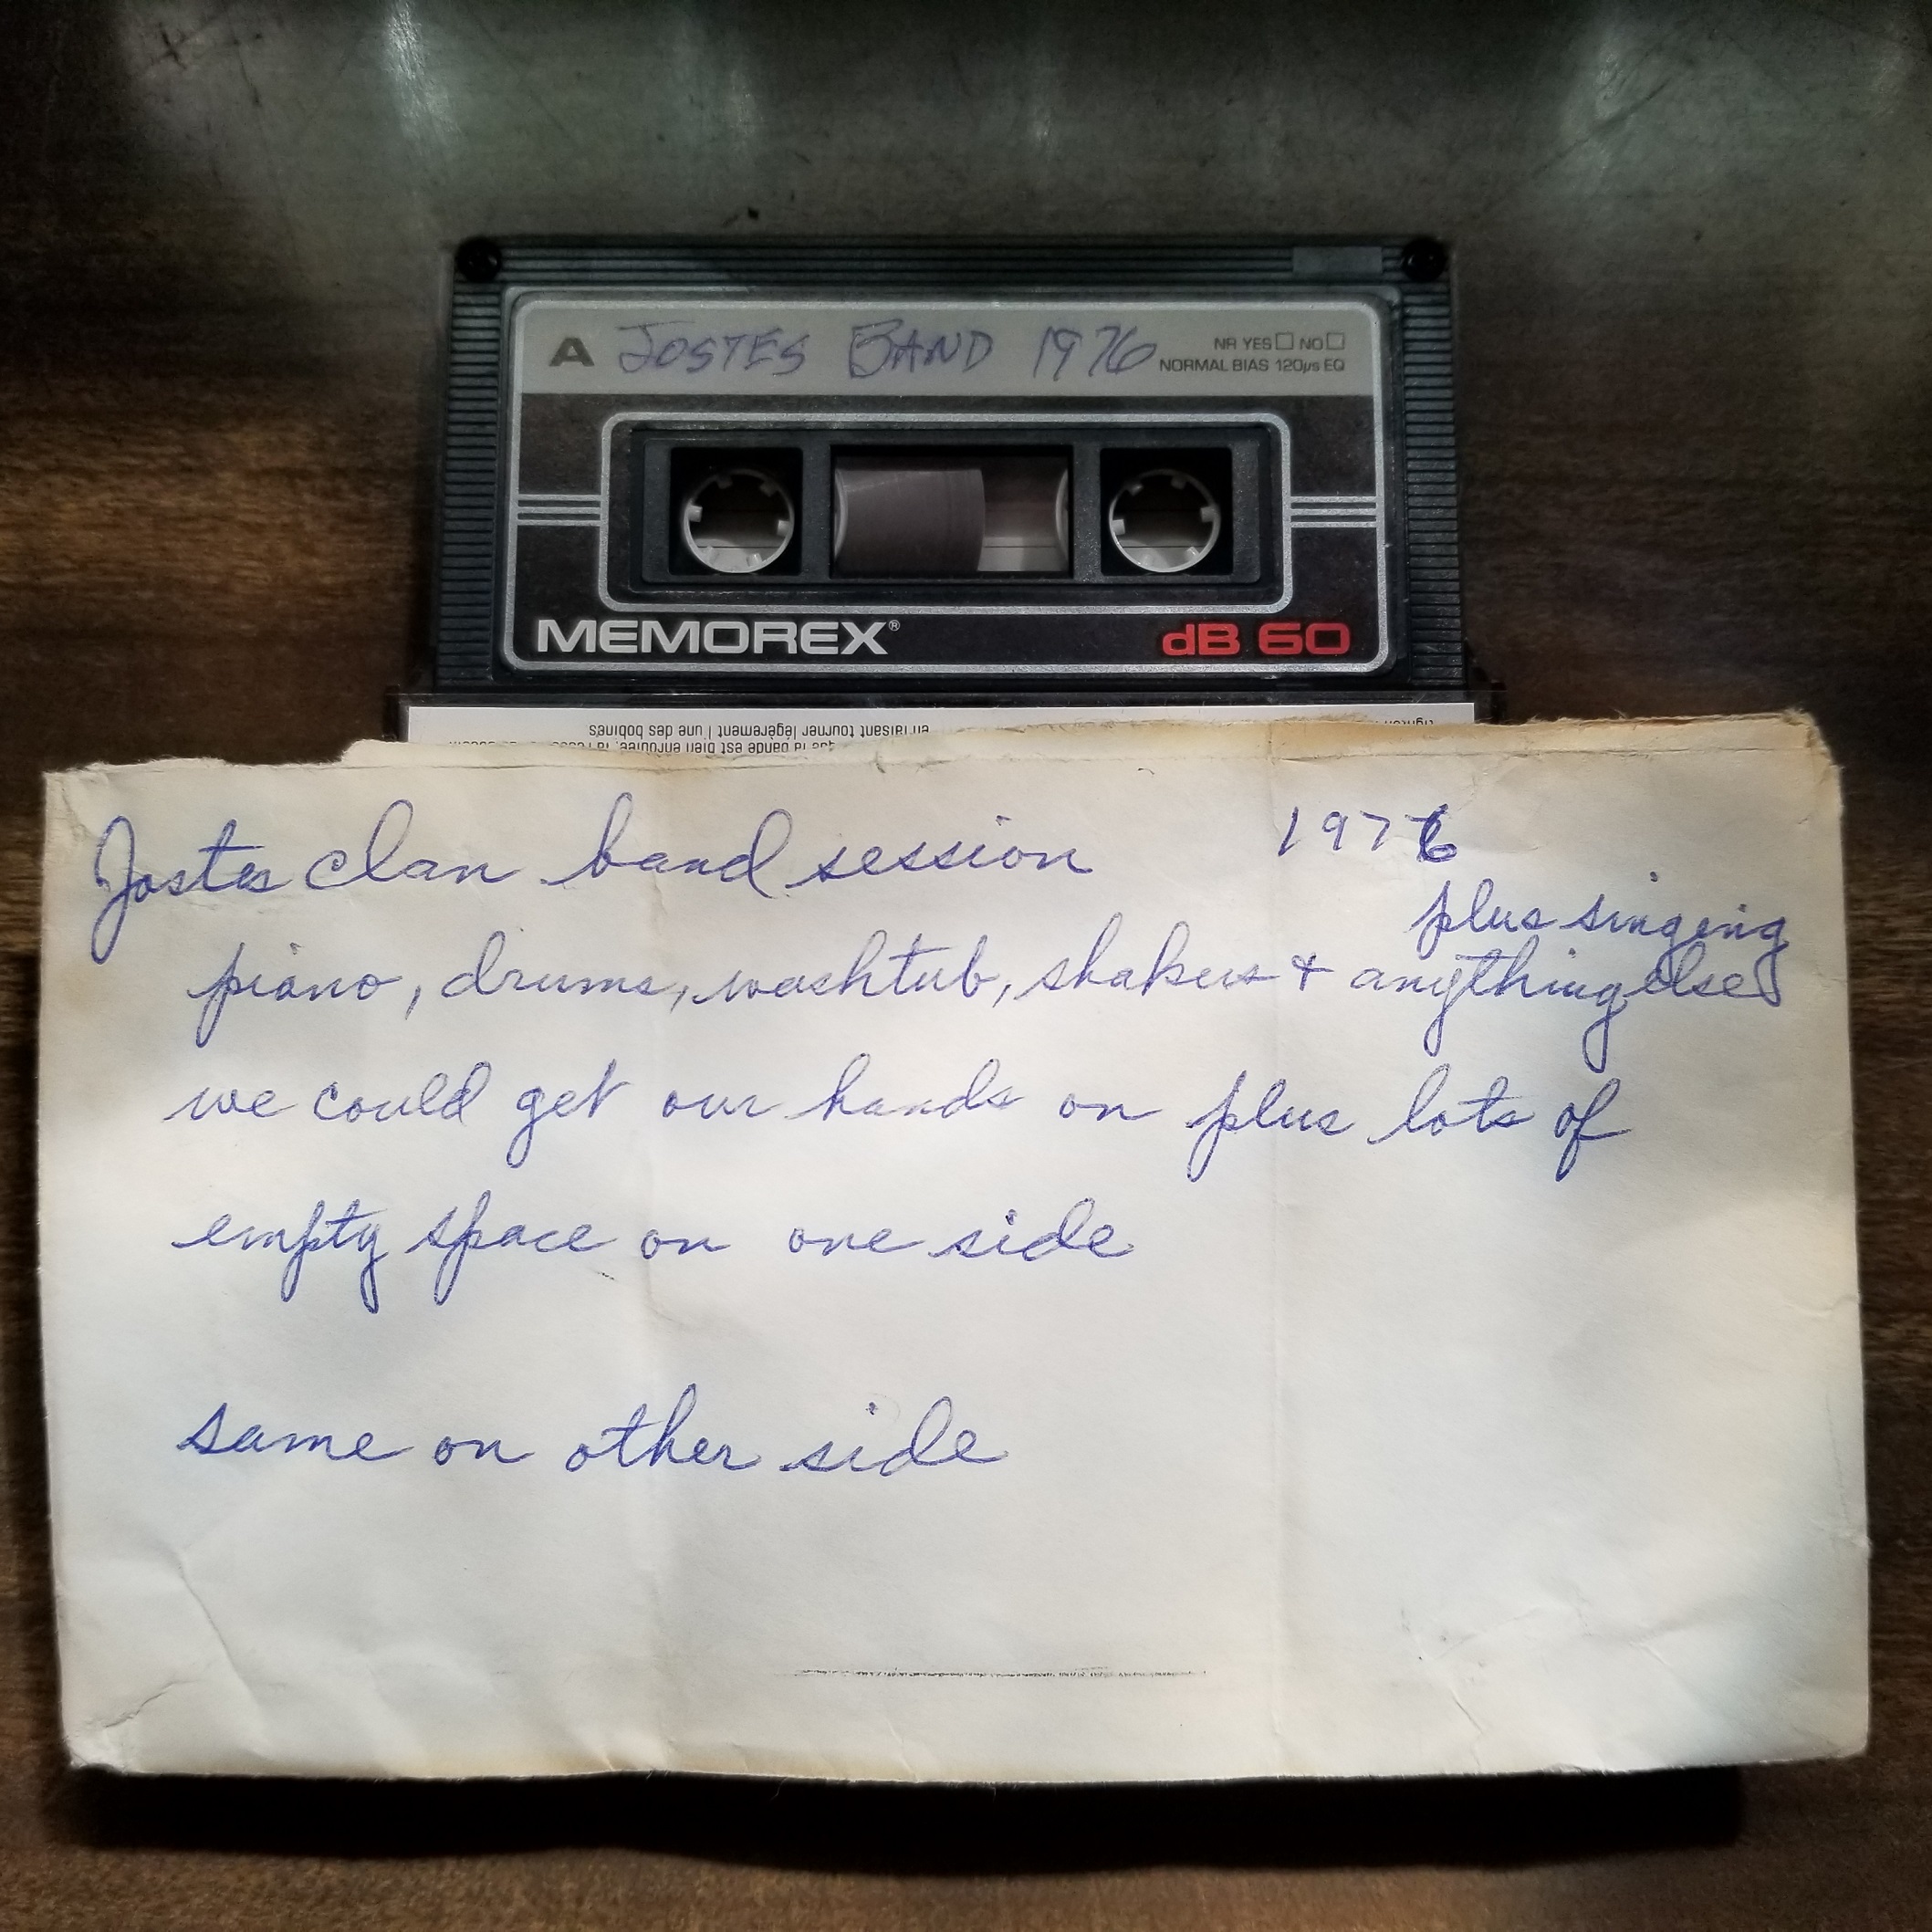 A JOSTES BAND 1976 NR YES NO
NORMAL BIAS 120µs EQ
MEMOREX® dB 60
en faisant tourner légèrement l'une des bobines
que la bande est bien enroulée,
Jostes clan band session 1976
plus singing
piano, drums, washtub, shakers + anything else
we could get our hands on plus lots of
empty space on one side
same on other side